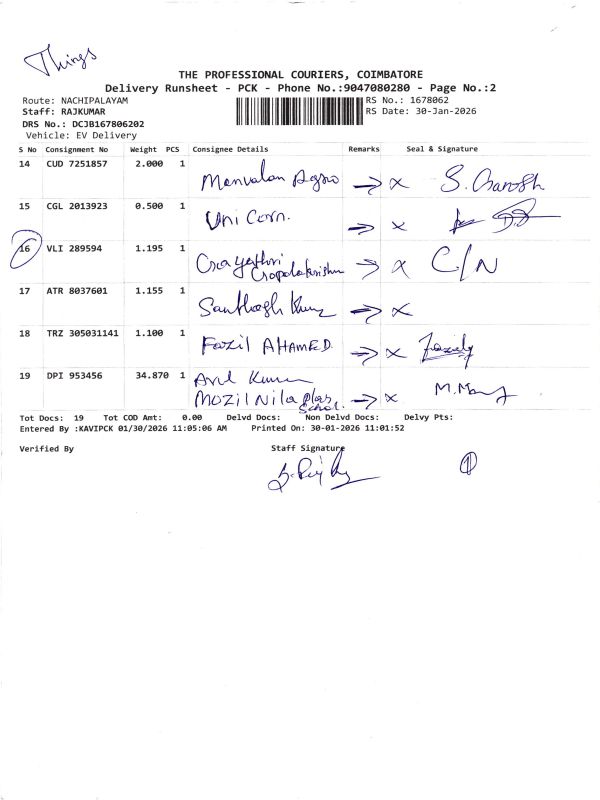 Things
THE PROFESSIONAL COURIERS, COIMBATORE
Delivery Runsheet - PCK - Phone No.:9047080280 - Page No.:2
Route: NACHIPALAYAM RS No.: 1678062
Staff: RAJKUMAR RS Date: 30-Jan-2026
DRS No.: DCJB167806202
Vehicle: EV Delivery
S No Consignment No Weight PCS Consignee Details Remarks Seal & Signature
14 CUD 7251857 2.000 1 Manvalan Agro → x
15 CGL 2013923 0.500 1 Uni Corn. → x
16 VLI 289594 1.195 1 Gayathri → x C/N
Gopalakrishnan
17 ATR 8037601 1.155 1 Santhosh Kumar → x
18 TRZ 305031141 1.100 1 Fazil AHAMED → x
19 DPI 953456 34.870 1 Arul Kumar
MOZIL NILA Plas → x
School.
Tot Docs: 19 Tot COD Amt: 0.00 Delvd Docs: Non Delvd Docs: Delvy Pts:
Entered By :KAVIPCK 01/30/2026 11:05:06 AM Printed On: 30-01-2026 11:01:52
Verified By Staff Signature
1